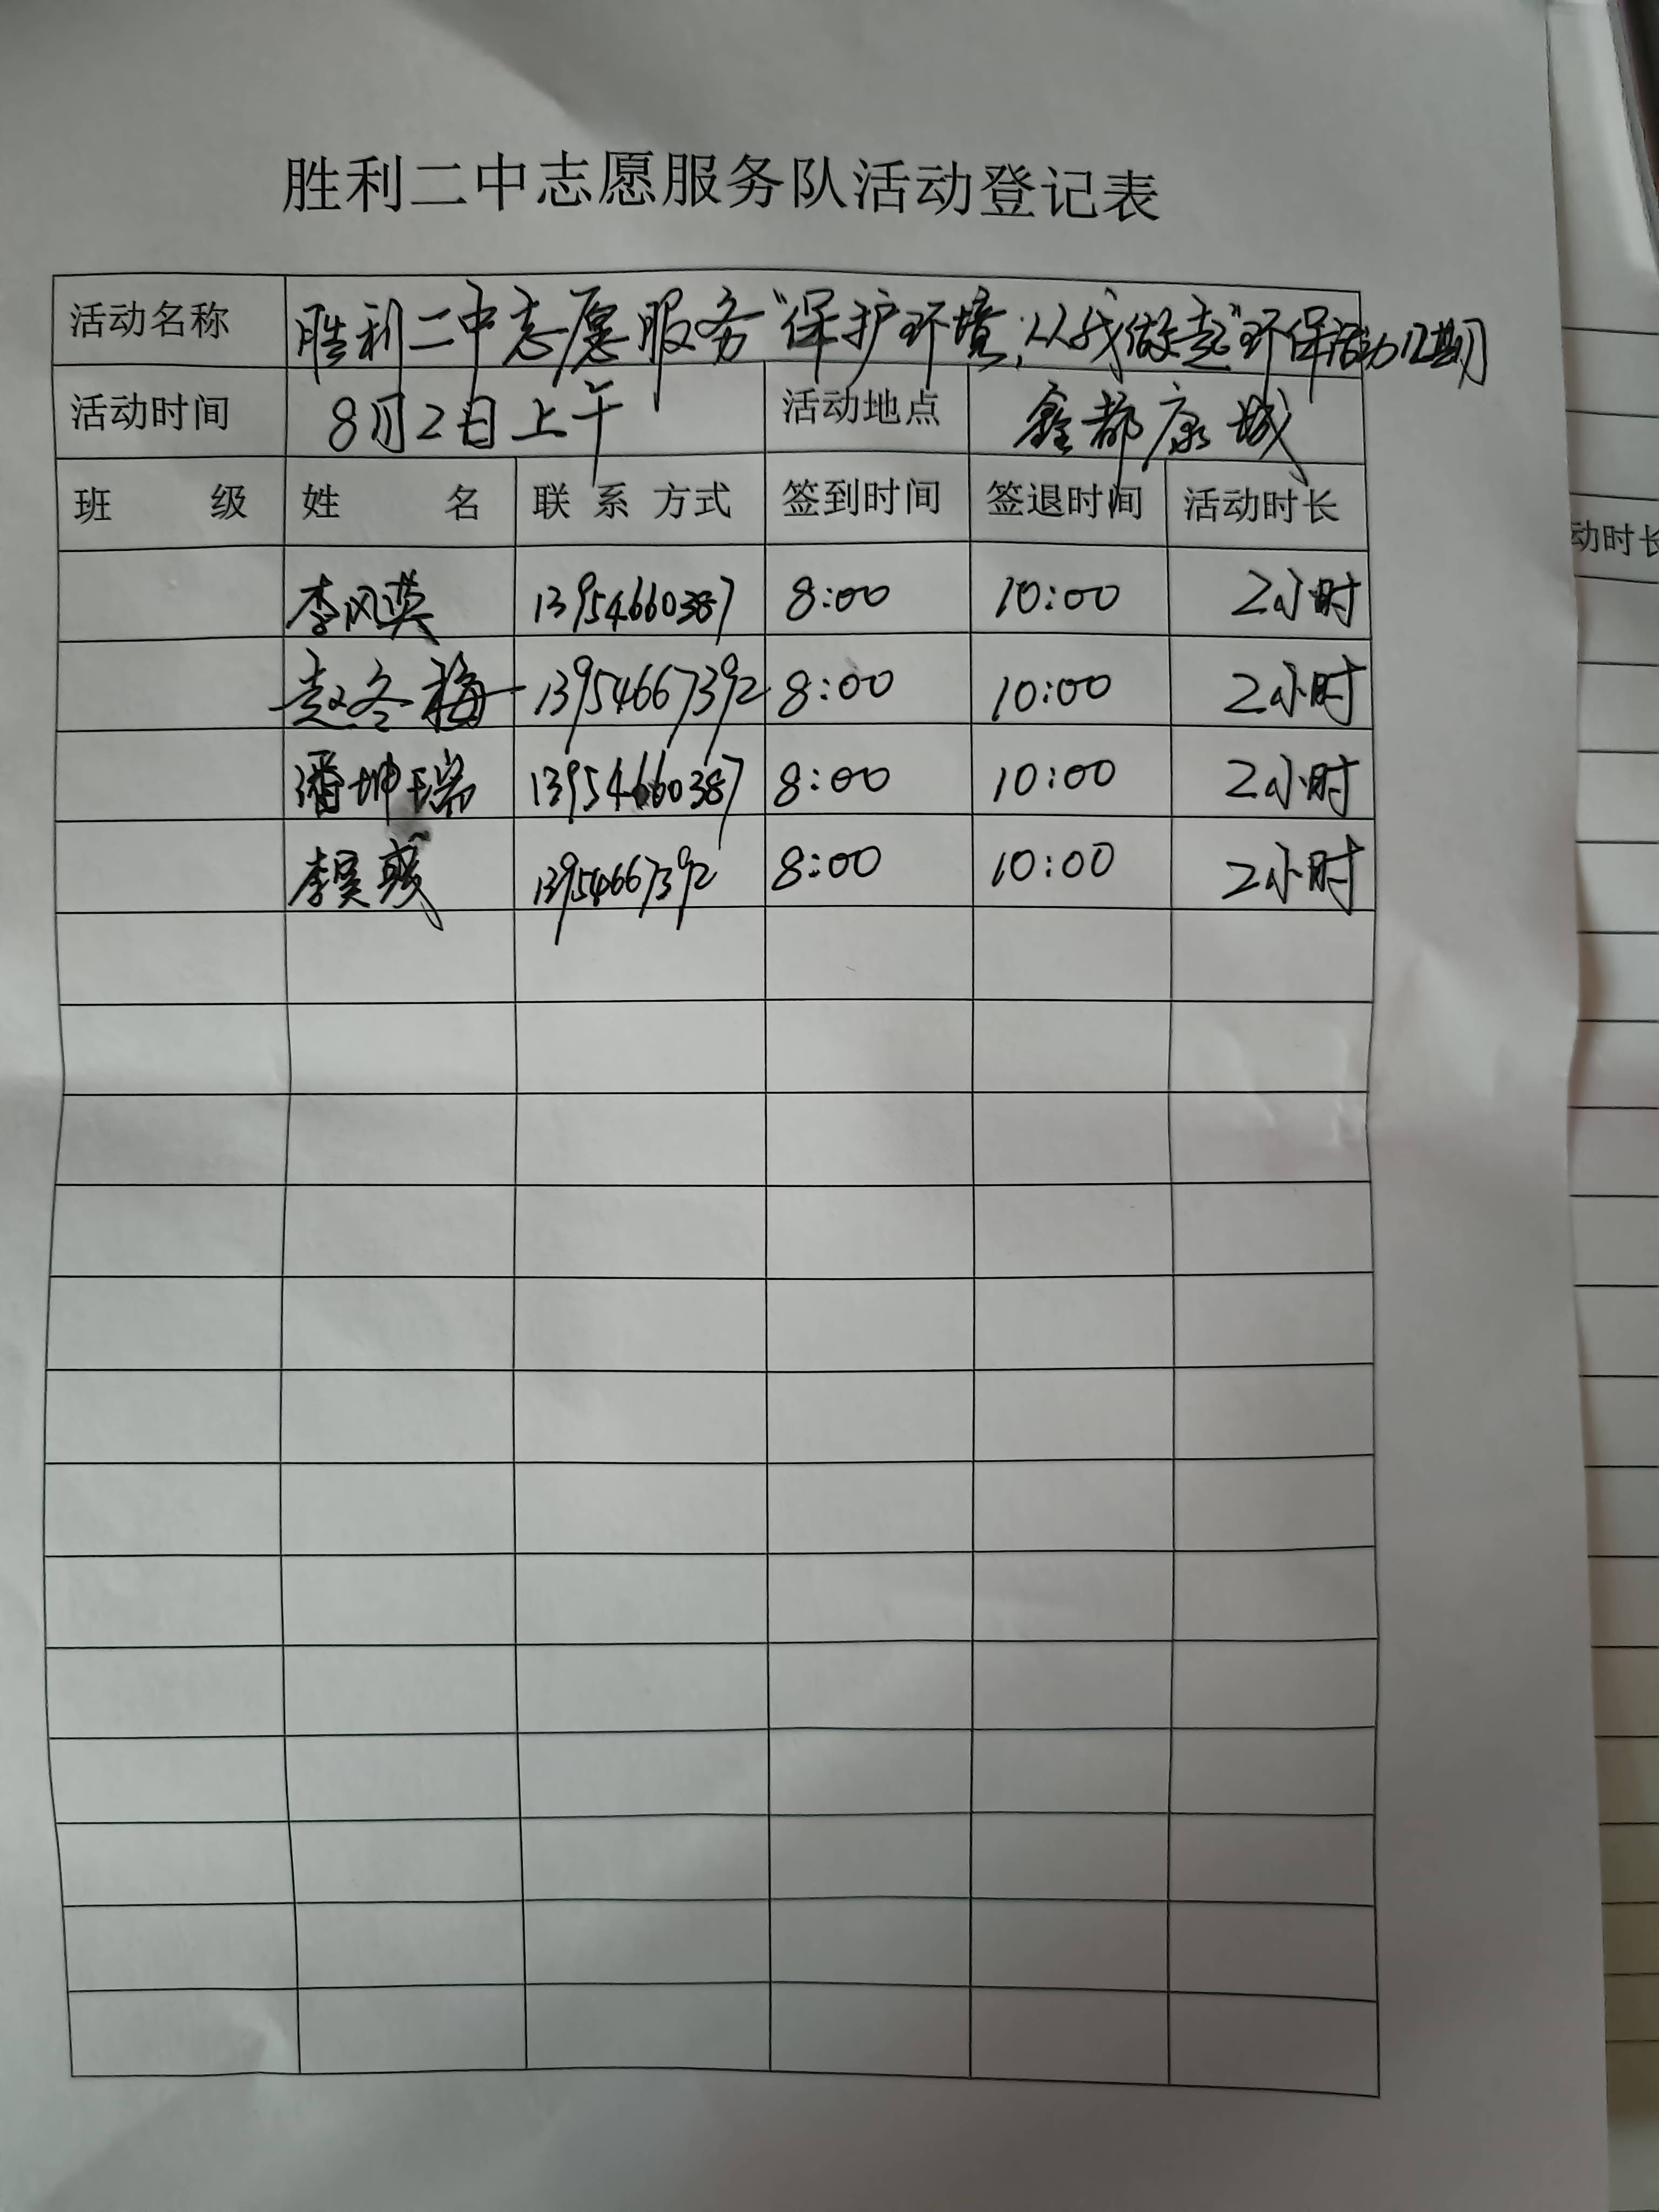 胜利二中志愿服务队活动登记表
活动名称 胜利二中志愿服务"保护环境,从我做起"环保活动12期
活动时间 8月2日上午 活动地点 鑫都康城
班 级 姓 名 联系方式 签到时间 签退时间 活动时长
李风英 13954660387 8:00 10:00 2小时
赵冬梅 13954667392 8:00 10:00 2小时
潘坤瑞 13954660387 8:00 10:00 2小时
李昊 13954667392 8:00 10:00 2小时
动时长